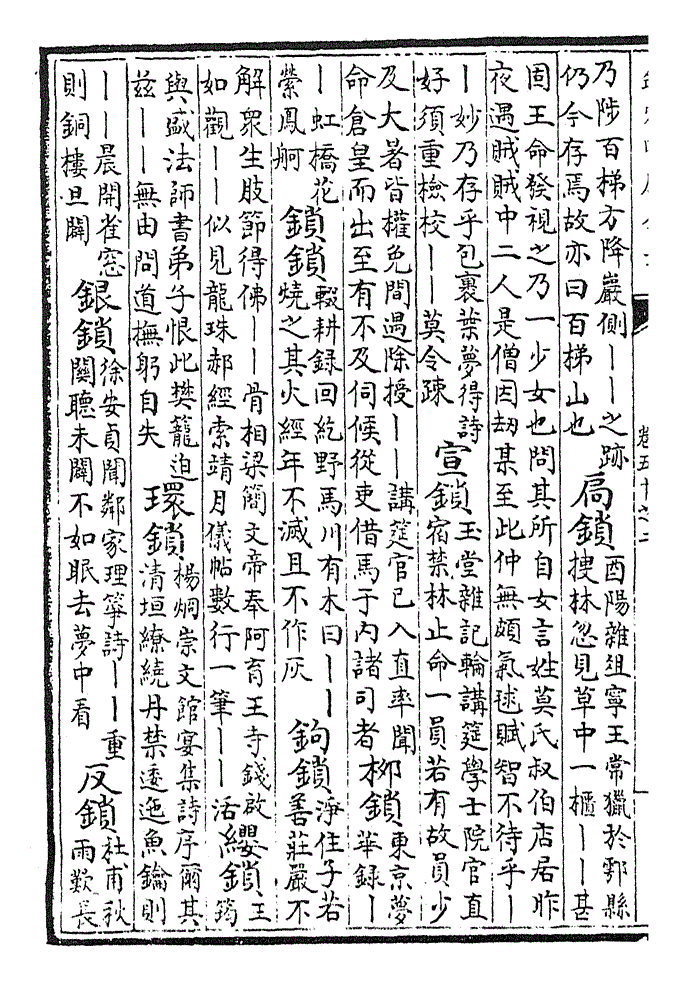 卷五十之二
乃陟百梯方降巖側｜｜之跡
仍今存焉故亦曰百梯山也
扃鎖
酉陽雜俎寧王常獵於鄠縣
搜林忽見草中一櫃｜｜甚
固王命發視之乃一少女也問其所自女言姓莫氏叔伯店居昨
夜遇賊賊中二人是僧因刼某至此仲無頗氣毬賦智不待乎｜
｜妙乃存乎包裹葉夢得詩
好須重檢校｜｜莫令疎
宣鎖
玉堂雜記輪講筵學士院官直
宿禁林止命一員若有故員少
及大暑皆權免間遇除授｜｜講筵官已入直率聞
命倉皇而出至有不及伺候從吏借馬于内諸司者
柳鎖
東京夢
華録｜
｜虹橋花
縈鳳舸
鎖鎖
輟耕録回紇野馬川有木曰｜｜
燒之其火經年不滅且不作灰
鉤鎖
淨住子若
善莊嚴不
解衆生肢節得佛｜｜骨相梁簡文帝奉阿育王寺錢啟
如觀｜｜似見龍珠郝經索靖月儀帖數行一筆｜｜活
纓鎖
王
筠
與盛法師書弟子恨此樊籠迫
兹｜｜無由問道撫躬自失
環鎖
楊炯崇文館宴集詩序爾其
清垣繚繞丹禁逶迤魚鑰則
｜｜晨開雀窓
則銅樓旦闢
銀鎖
徐安貞聞鄰家理箏詩｜｜重
關聽未闢不如眠去夢中看
反鎖
杜甫秋
雨歎長